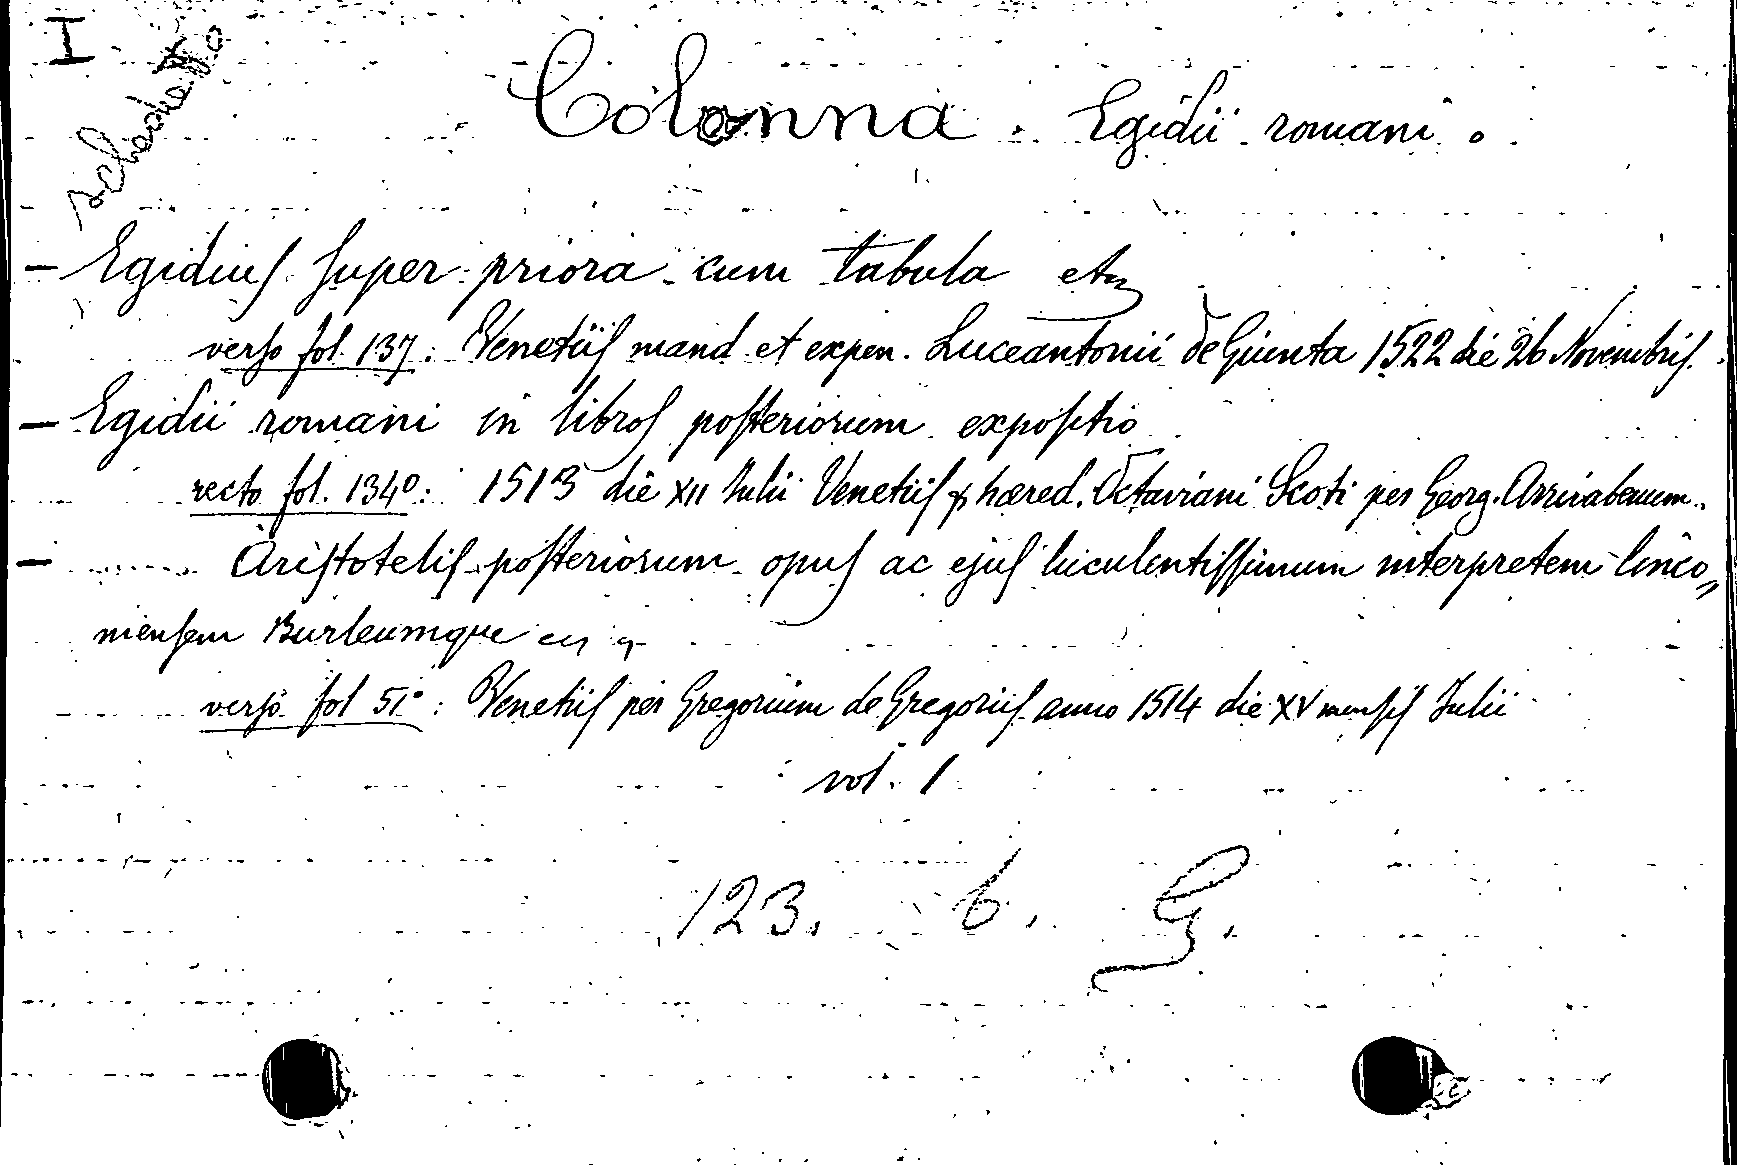 I
schedato
Colonna. Egidii romani.
- Egidius super priora cum tabula etc
verso fol. 137: Venetiis mand et expen. Luceantonii de Giunta 1522 die 26 Novembris.
- Egidii romani in libros posteriorum expositio
recto fol. 134º: 1513 die XII Iulii Venetiis hæred. Octaviani Scoti per Georg. Arrivabenum.
- Aristotelis posteriorum opus ac ejus luculentissimum interpretem linco„
niensem Burleumque
verso fol 51º: Venetiis per Gregorium de Gregoriis anno 1514 die XV mensis Julii
vol. 1
123. b. G.